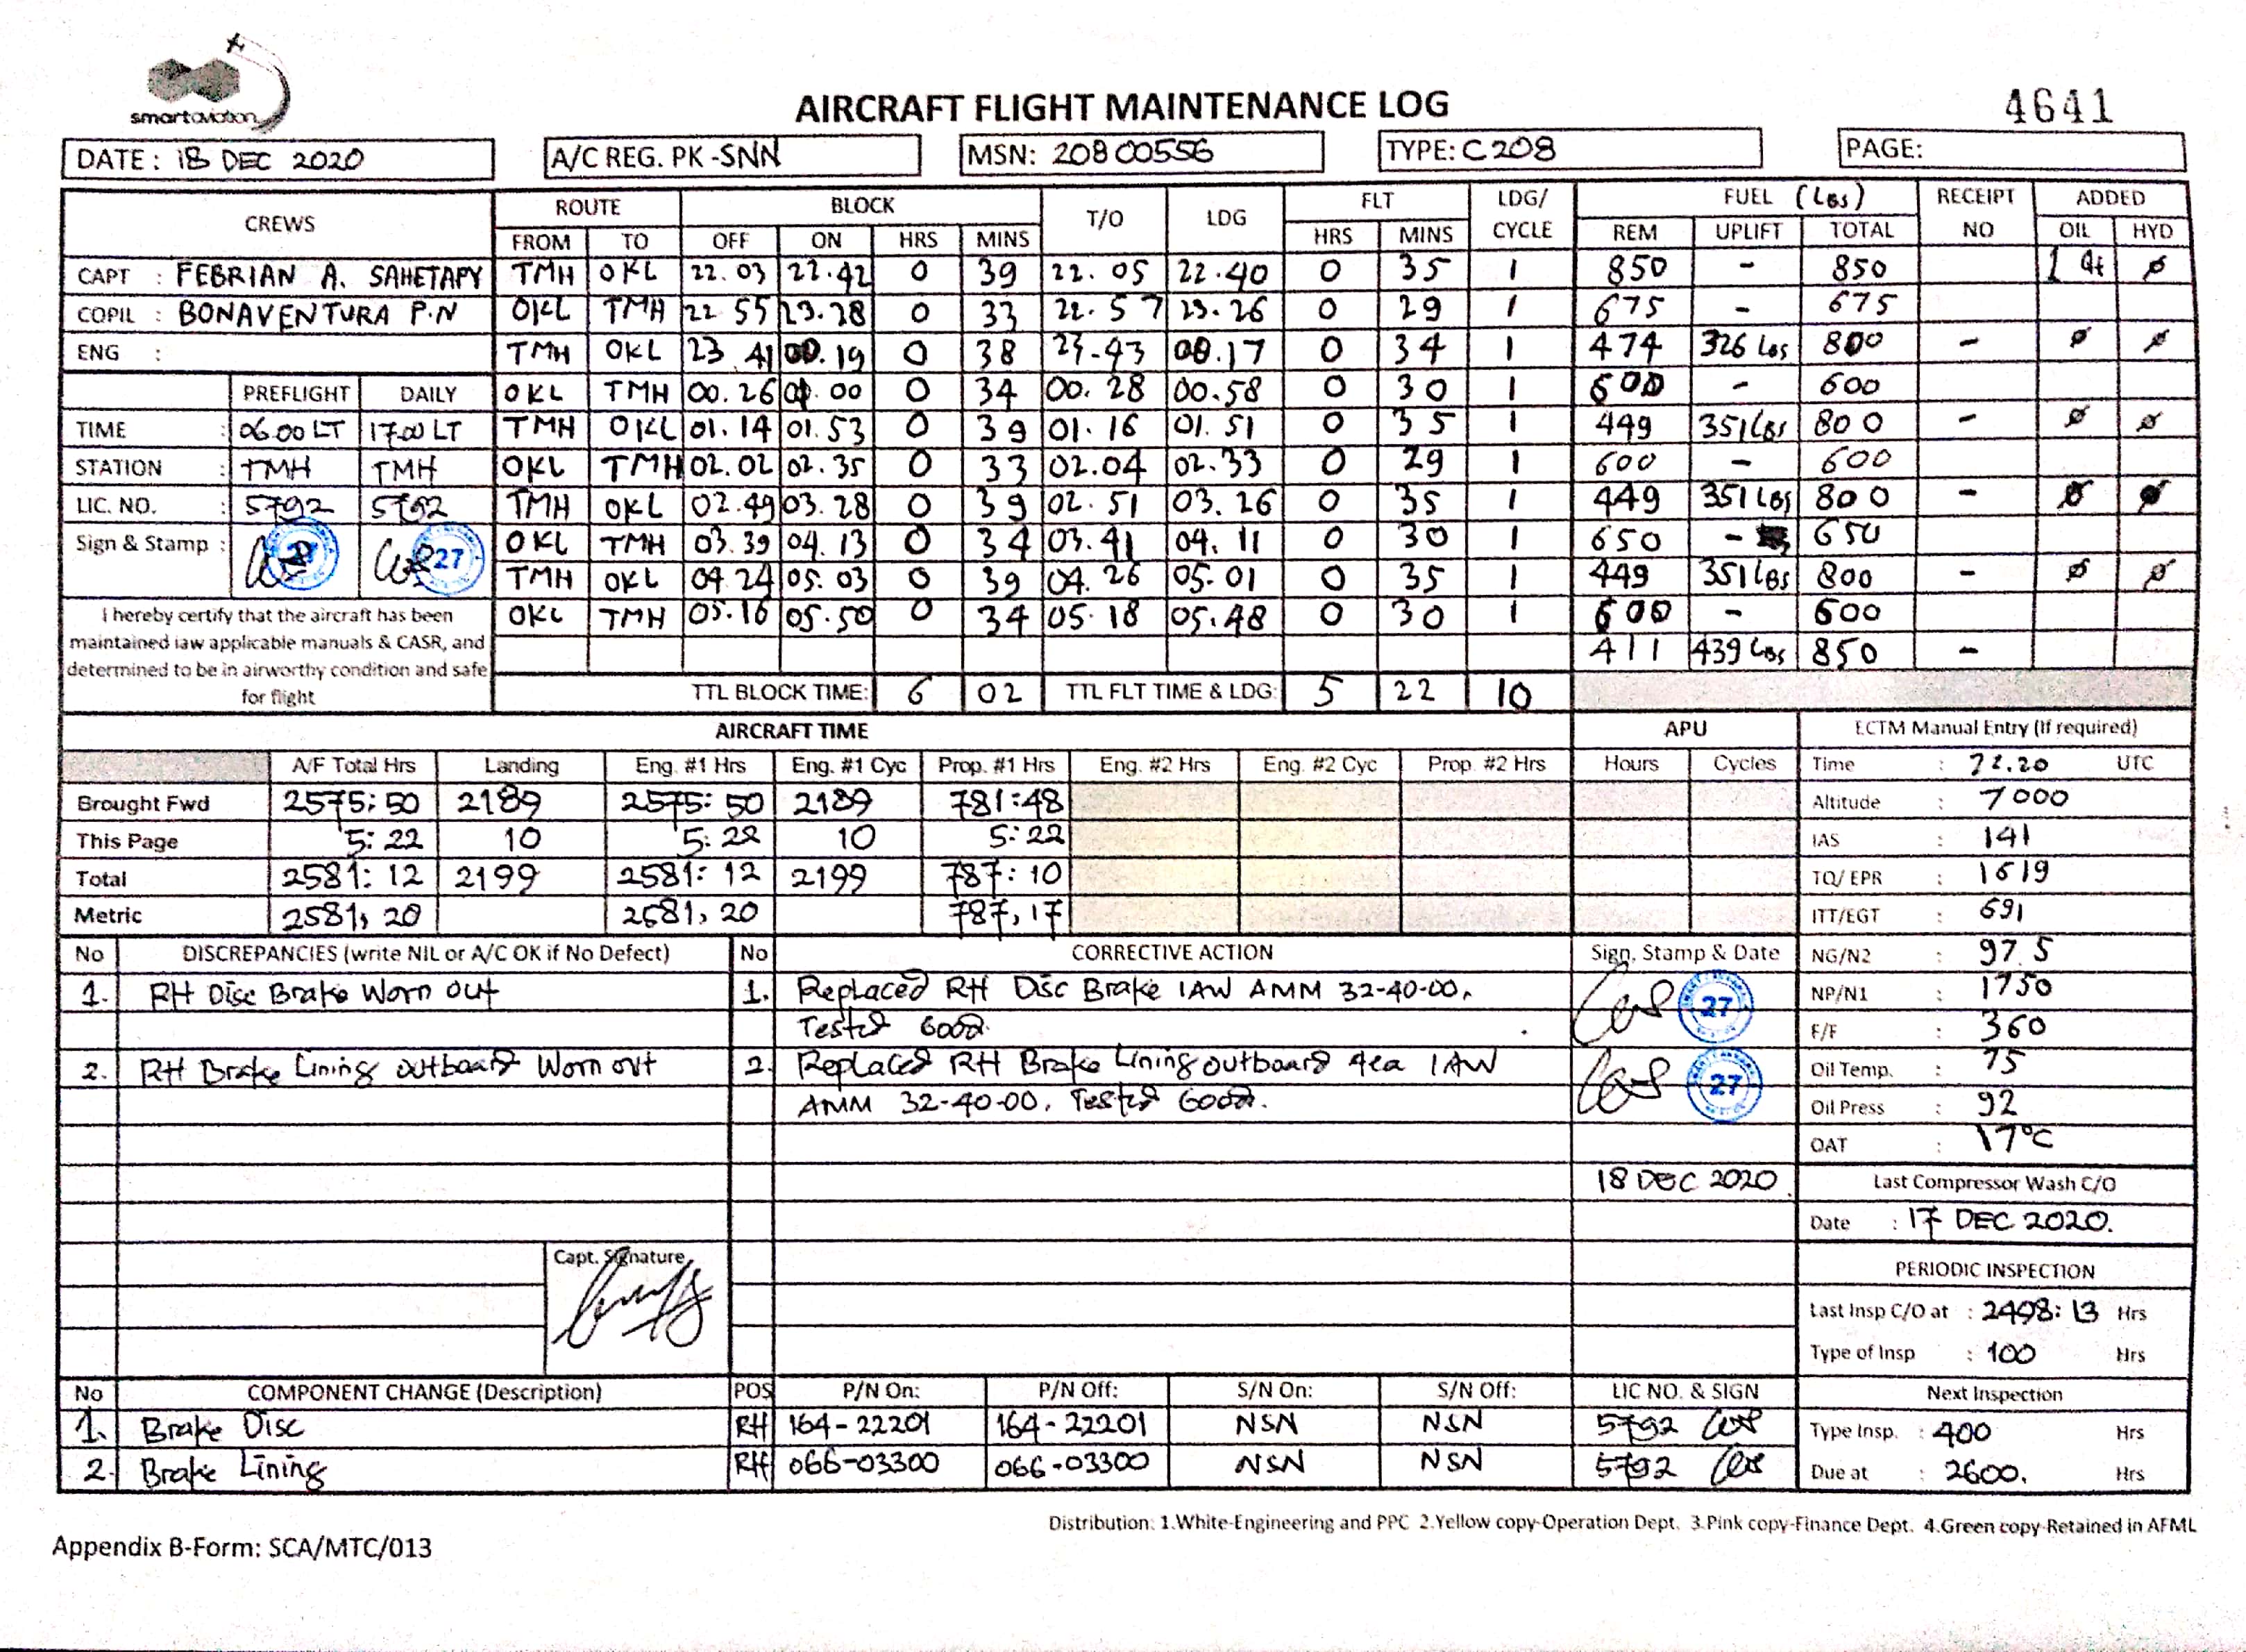 smartaviation
AIRCRAFT FLIGHT MAINTENANCE LOG
4641
DATE: 18 DEC 2020 A/C REG. PK-SNN MSN: 20800556 TYPE: C208 PAGE:
CREWS ROUTE BLOCK T/O LDG FLT LDG/ CYCLE FUEL (Lbs) RECEIPT NO ADDED
FROM TO OFF ON HRS MINS HRS MINS REM UPLIFT TOTAL OIL HYD
CAPT : FEBRIAN A. SAHETAPY TMH OKL 22.03 22.42 0 39 22.05 22.40 0 35 1 850 - 850 1 Qt ø
COPIL : BONAVENTURA P.N OKL TMH 22 55 23.28 0 33 22.57 23.26 0 29 1 675 - 675
ENG : TMH OKL 23 41 00.19 0 38 23.43 00.17 0 34 1 474 326 Lbs 800 - ø ø
PREFLIGHT DAILY OKL TMH 00.26 01.00 0 34 00.28 00.58 0 30 1 600 - 600
TIME : 06.00 LT 17.00 LT TMH OKL 01.14 01.53 0 39 01.16 01.51 0 35 1 449 351 Lbs 800 - ø ø
STATION : TMH TMH OKL TMH 02.02 02.35 0 33 02.04 02.33 0 29 1 600 - 600
LIC. NO. : 5792 5792 TMH OKL 02.49 03.28 0 39 02.51 03.26 0 35 1 449 351 Lbs 800 - ø ø
Sign & Stamp : 27 27 OKL TMH 03.39 04.13 0 34 03.41 04.11 0 30 1 650 - 650
TMH OKL 04.24 05.03 0 39 04.26 05.01 0 35 1 449 351 Lbs 800 - ø ø
I hereby certify that the aircraft has been OKL TMH 05.16 05.50 0 34 05.18 05.48 0 30 1 600 - 600
maintained iaw applicable manuals & CASR, and 411 439 Lbs 850 -
determined to be in airworthy condition and safe
for flight TTL BLOCK TIME: 6 02 TTL FLT TIME & LDG: 5 22 10
AIRCRAFT TIME APU ECTM Manual Entry (If required)
A/F Total Hrs Landing Eng. #1 Hrs Eng. #1 Cyc Prop. #1 Hrs Eng. #2 Hrs Eng. #2 Cyc Prop. #2 Hrs Hours Cycles Time : 22.20 UTC
Brought Fwd 2575:50 2189 2575:50 2189 781:48 Altitude : 7000
This Page 5:22 10 5:22 10 5:22 IAS : 141
Total 2581:12 2199 2581:12 2199 787:10 TQ/ EPR : 1619
Metric 2581,20 2581,20 787,17 ITT/EGT : 691
No DISCREPANCIES (write NIL or A/C OK if No Defect) No CORRECTIVE ACTION Sign, Stamp & Date NG/N2 : 97.5
1. RH Disc Brake Worn out 1. Replaced RH Disc Brake IAW AMM 32-40-00. 27 NP/N1 : 1750
Tested Good. F/F : 360
2. RH Brake Lining outboard Worn out 2. Replaced RH Brake Lining outboard 4ea IAW 27 Oil Temp. : 75
AMM 32-40-00. Tested Good. Oil Press : 92
OAT : 17°C
18 DEC 2020 Last Compressor Wash C/O
Date : 17 DEC 2020.
Capt. Signature PERIODIC INSPECTION
Last Insp C/O at : 2498:13 Hrs
Type of Insp : 100 Hrs
No COMPONENT CHANGE (Description) POS P/N On: P/N Off: S/N On: S/N Off: LIC NO. & SIGN Next Inspection
1. Brake Disc RH 164-22201 164-22201 NSN NSN 5792 Type Insp. : 400 Hrs
2. Brake Lining RH 066-03300 066-03300 NSN NSN 5792 Due at : 2600. Hrs
Distribution: 1.White-Engineering and PPC 2.Yellow copy-Operation Dept. 3.Pink copy-Finance Dept. 4.Green copy-Retained in AFML
Appendix B-Form: SCA/MTC/013